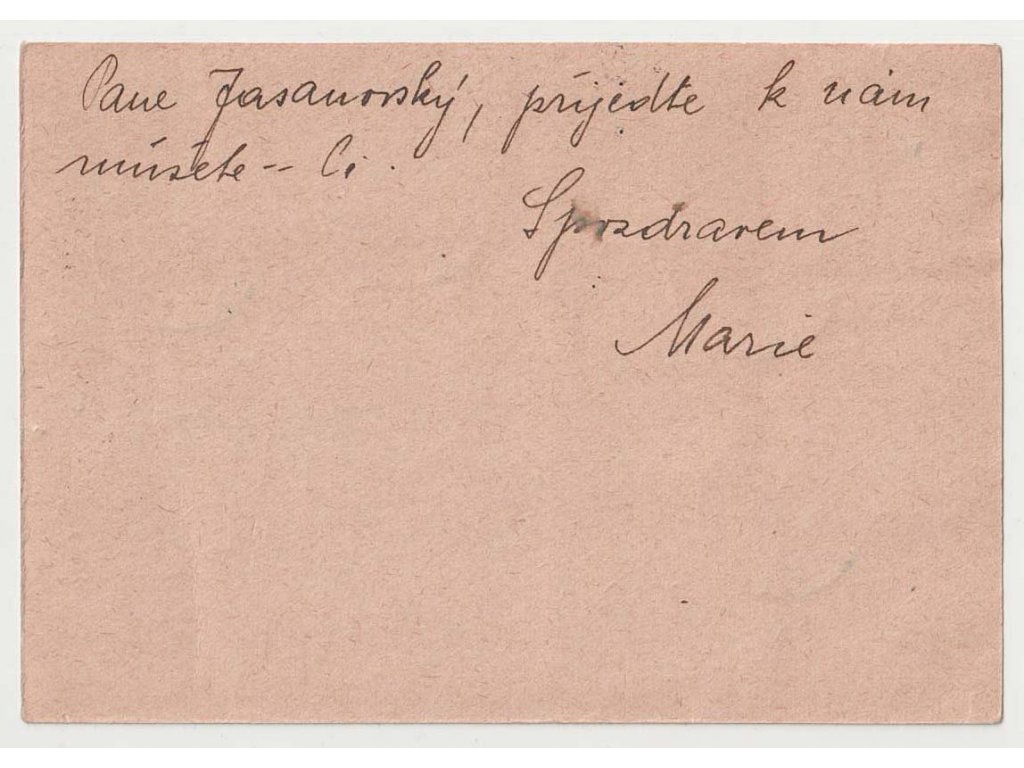 Pane Jasanovský, prijedte k nám
můžete-li.
S pozdravem
Marie